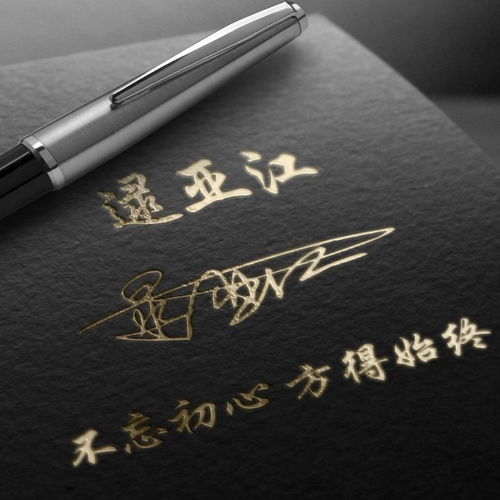 逯亚江
不忘初心 方得始终